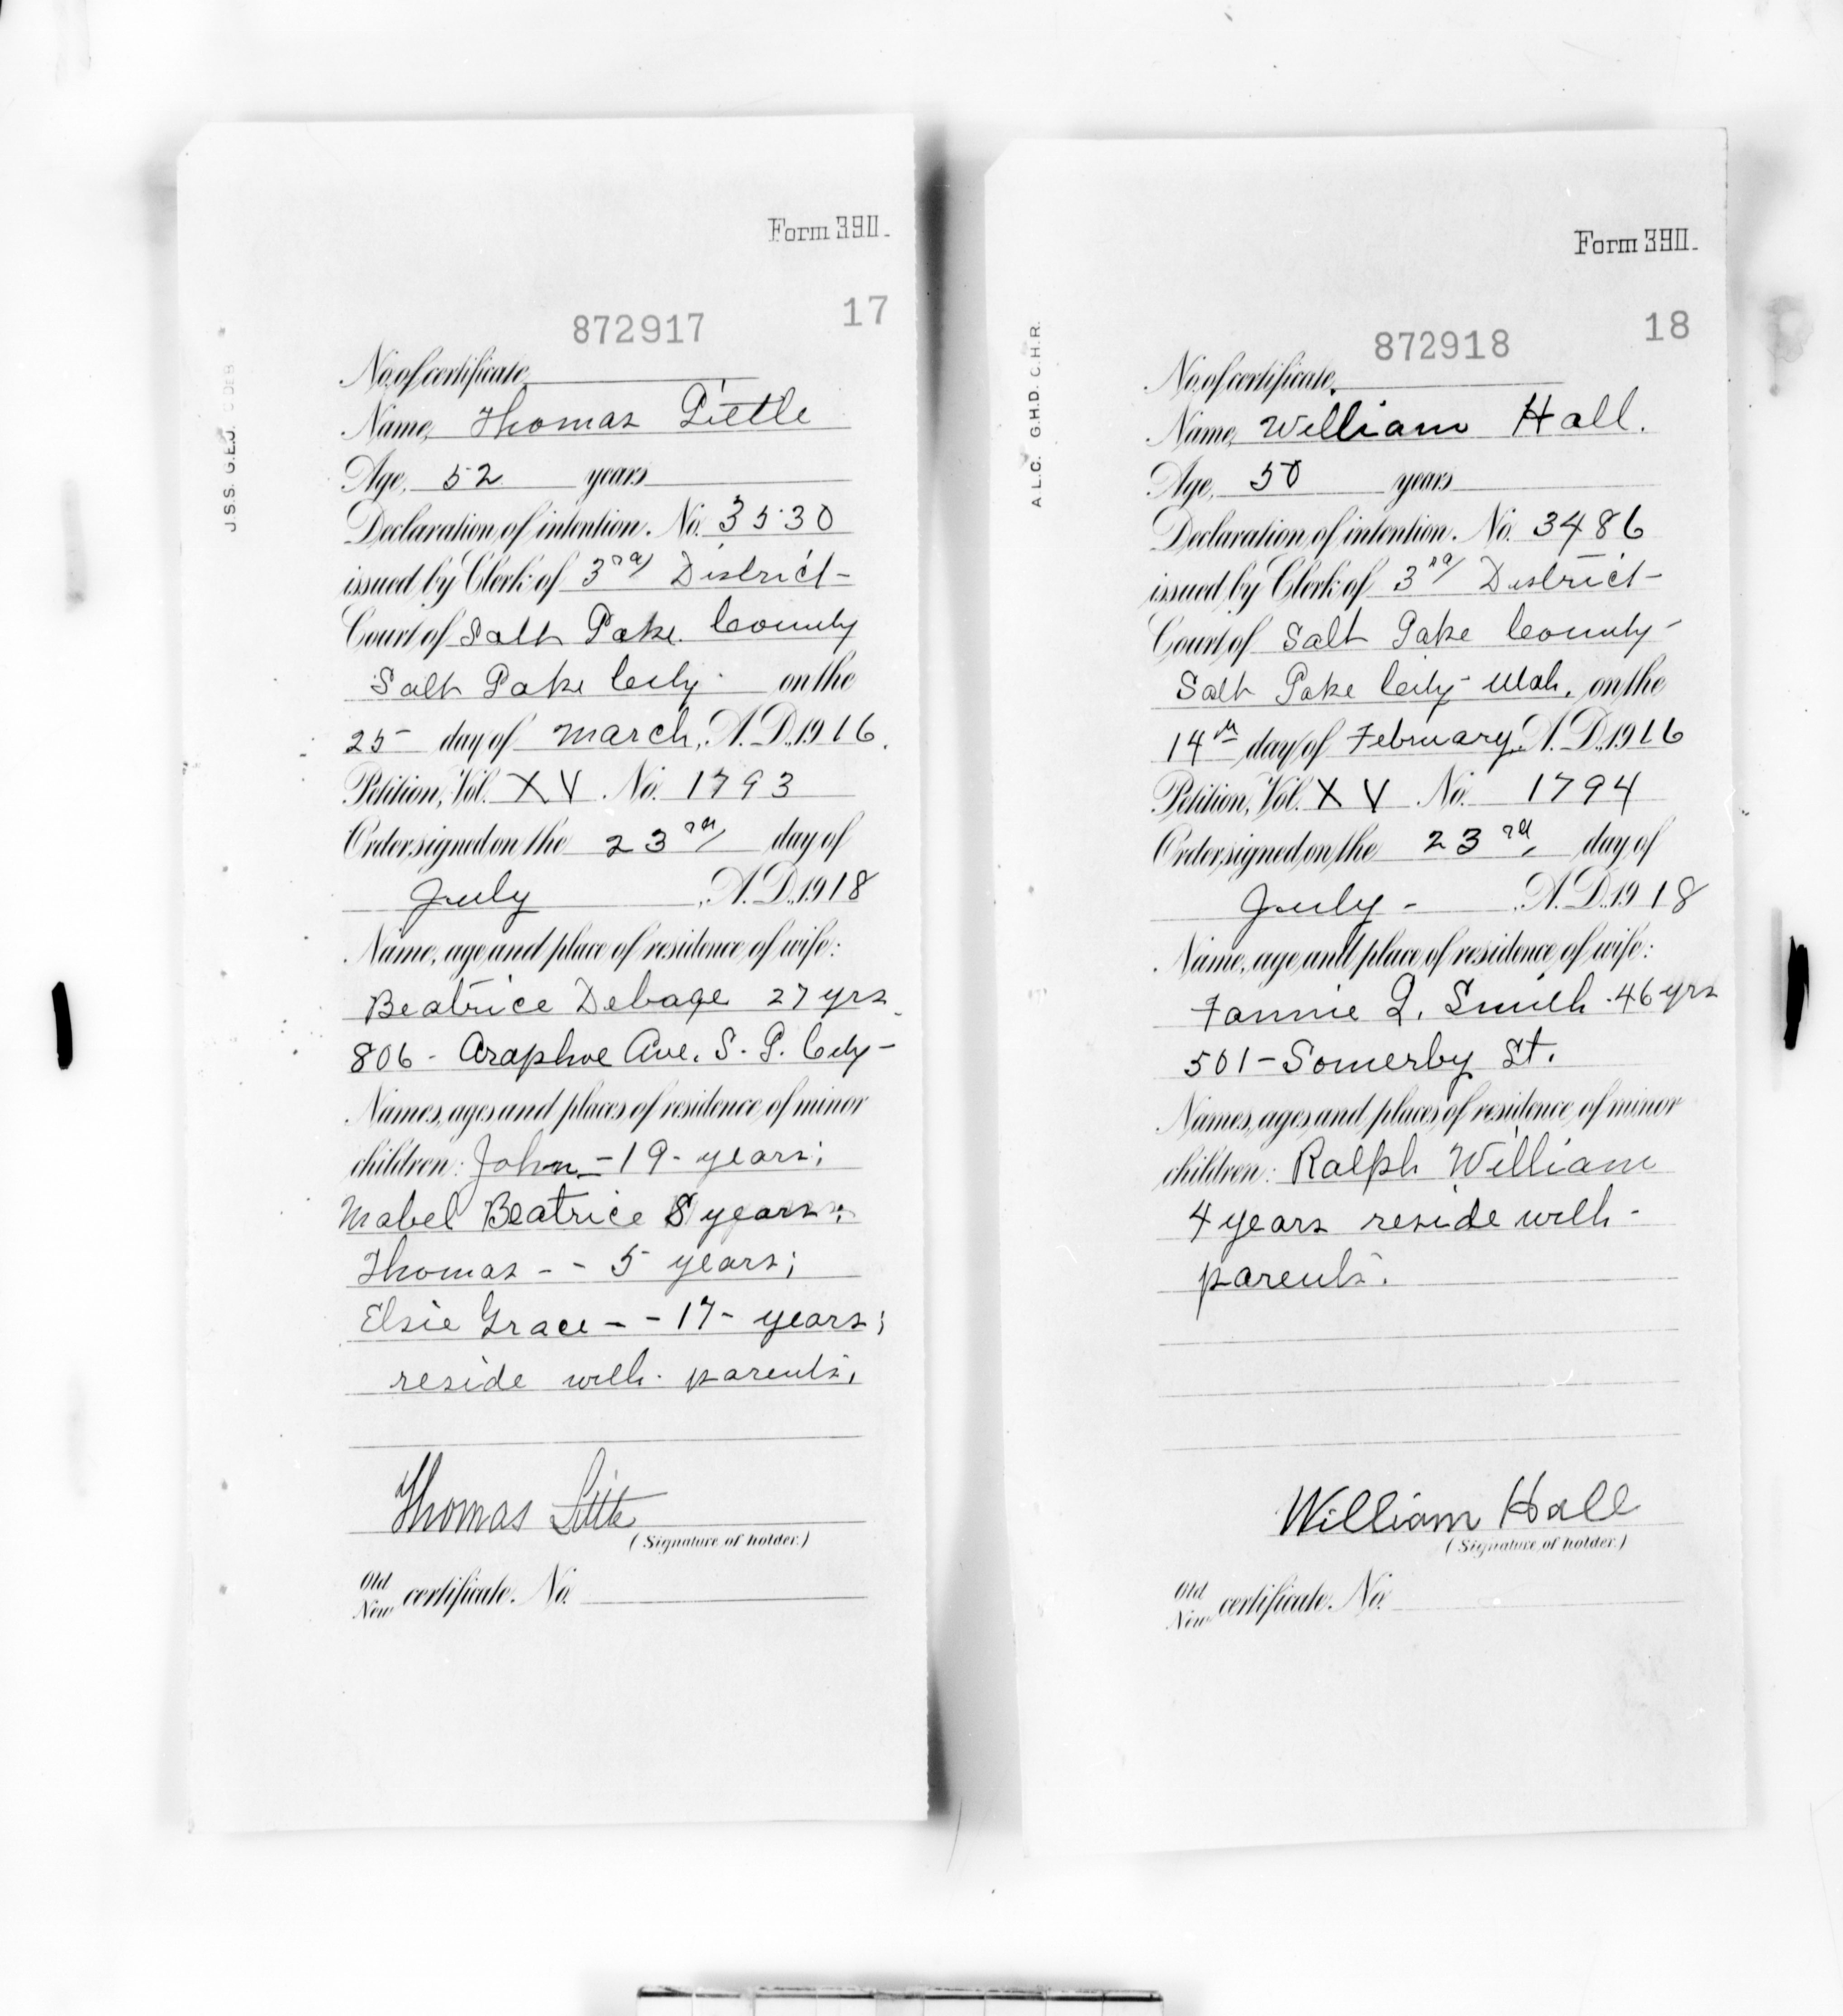 Form 390.
17
872917
J.S.S. G.E.J.
No. of certificate,
Name, Thomas Little
Age, 52 years
Declaration of intention, No. 3530
issued by Clerk of 3rd District
Court of Salt Lake County
Salt Lake City on the
25 day of March, A.D. 1916.
Petition, Vol. XV No. 1793
Order signed on the 23rd day of
July, A.D. 1918
Name, age and place of residence of wife:
Beatrice Debage 27 yrs
806 - Araphoe Ave. S. L. City -
Names, ages and places of residence of minor
children: John - 19 - years;
Mabel Beatrice 8 years;
Thomas - - 5 years;
Elsie Grace - - 17 - years;
reside with parents.
Thomas Little
(Signature of holder.)
Old
New certificate, No.
Form 390.
18
872918
A.L.C. G.H.D. C.H.R.
No. of certificate,
Name, William Hall.
Age, 50 years
Declaration of intention, No. 3486
issued by Clerk of 3rd District
Court of Salt Lake County
Salt Lake City - Utah, on the
14th day of February, A.D. 1916
Petition, Vol. XV No. 1794
Order signed on the 23rd, day of
July - , A.D. 1918
Name, age and place of residence of wife:
Fannie L. Smith 46 yrs
501 - Somerby St.
Names, ages and places of residence of minor
children: Ralph William
4 years reside with -
parents.
William Hall
(Signature of holder.)
Old
New certificate, No.